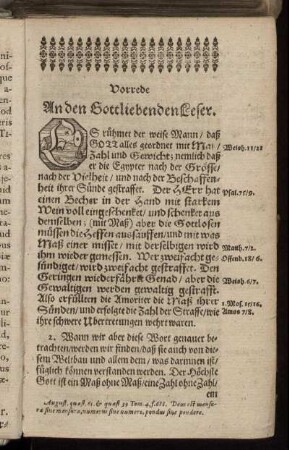 Vorrede
An den Gottliebenden Leser.
ES rühmet der weise Mann / daß
GOTT alles geordnet mit Maß /
Zahl und Gewicht; nemlich daß
er die Egypter nach der Grösse /
nach der Vielheit / und nach der Beschaffen-
heit ihrer Sünde gestraffet. Der HErr hat
einen Becher in der Hand mit starkem
Wein voll eingeschenket / und schenket aus
demselben / (mit Maß) aber die Gottlosen
müssen die Heffen aussauffen / und mit was
Maß einer misset / mit derselbigen wird
ihm wieder gemessen. Wer zweifacht ge-
sündiget / wird zweifacht gestraffet. Den
Geringen wiederfährt Genad / aber die
Gewaltigen werden gewaltig gestrafft.
Also erfüllten die Amoriter die Maß ihrer
Sünden / und erfolgte die Zahl der Straffe / wie
ihr schwere Ubertrettungen wehrt waren.
2. Wann wir aber diese Wort genauer be-
trachten / werden wir finden / daß sie auch von die-
sem Weltbau und allem dem / was darinnen ist /
füglich können verstanden werden. Der Höchste
Gott ist ein Maß ohne Maß / eine Zahl ohne Zahl /
ein
Weish. 11/22
Psal. 75/9.
Matth. 7/2.
Offenb. 18/6.
Weish. 6/7.
1. Mos. 15/16.
Amos 7/8.
August. quæst. Tom. 4. Deus est mensu-
ra sine mensura, numerus sine numero, pondus sine pondere.